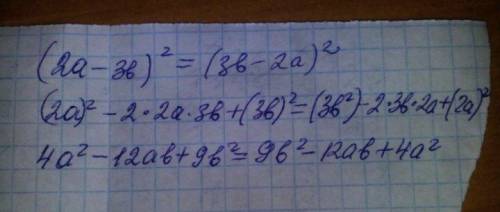 (2a - 3в)² = (3в - 2a)²
(2a)² - 2·2a·3в + (3в)² = (3в²) - 2·3в·2a + (2a)²
4a² - 12aв + 9в² = 9в² - 12aв + 4a²